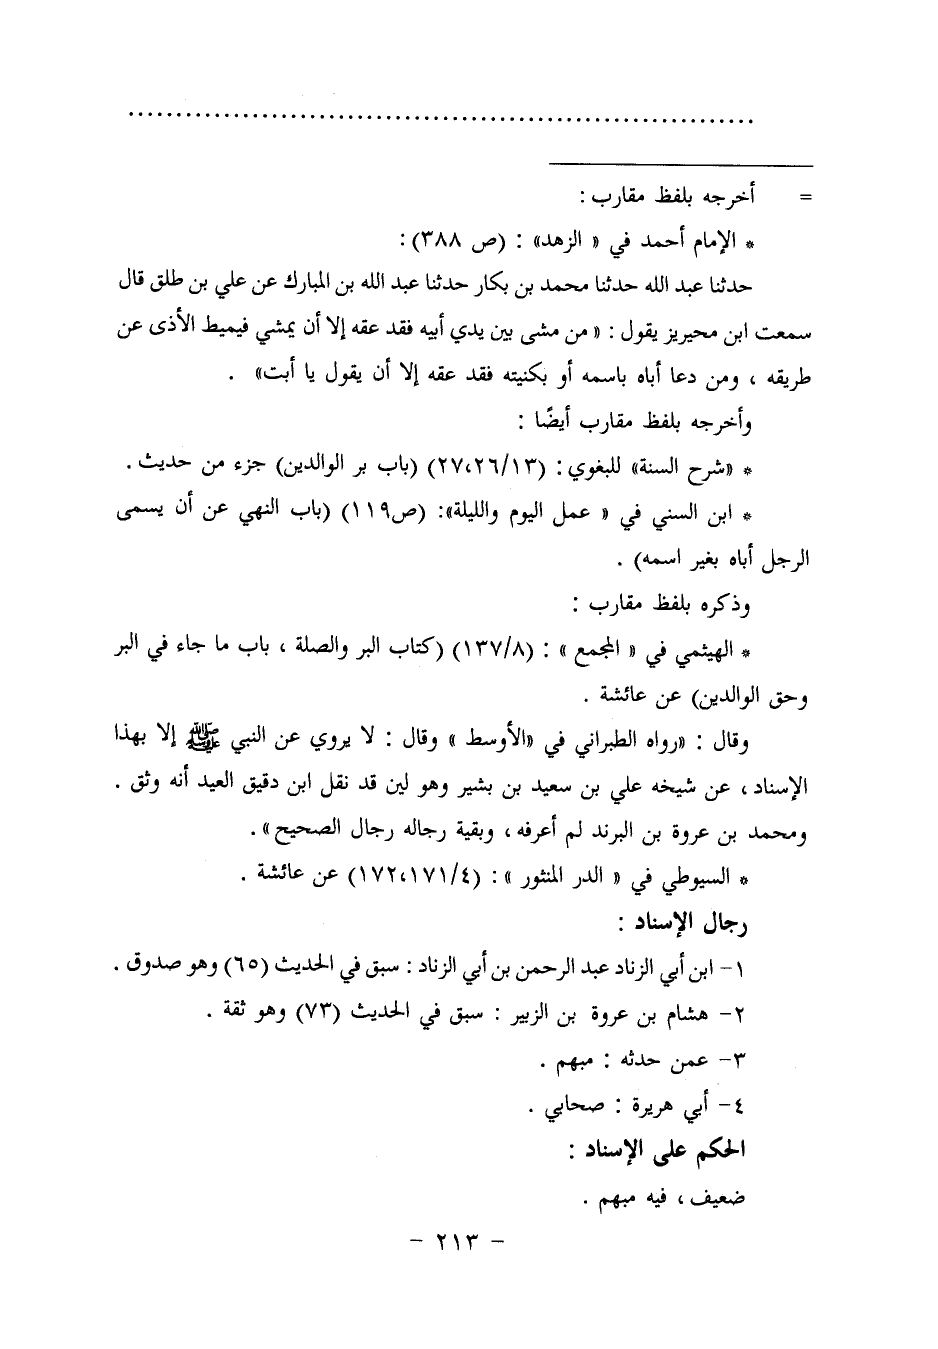 ..............................................................
= أخرجه بلفظ مقارب :
* الإمام أحمد في « الزهد» : (ص ٣٨٨) :
حدثنا عبد الله حدثنا محمد بن بكار حدثنا عبد الله بن المبارك عن علي بن طلق قال
سمعت ابن محيريز يقول : « من مشى بين يدي أبيه فقد عقه إلا أن يمشي فيميط الأذى عن
طريقه ، ومن دعا أباه باسمه أو بكنيته فقد عقه إلا أن يقول يا أبت» .
وأخرجه بلفظ مقارب أيضًا :
* «شرح السنة» للبغوي : (٢٧،٢٦/١٣) (باب بر الوالدين) جزء من حديث .
* ابن السني في « عمل اليوم والليلة»: (ص١١٩) (باب النهي عن أن يسمى
الرجل أباه بغير اسمه) .
وذكره بلفظ مقارب :
* الهيثمي في « المجمع » : (١٣٧/٨) (كتاب البر والصلة ، باب ما جاء في البر
وحق الوالدين) عن عائشة .
وقال : «رواه الطبراني في «الأوسط » وقال : لا يروي عن النبي ﷺ إلا بهذا
الإسناد ، عن شيخه علي بن سعيد بن بشير وهو لين قد نقل ابن دقيق العيد أنه وثق .
ومحمد بن عروة بن البرند لم أعرفه ، وبقية رجاله رجال الصحيح» .
* السيوطي في « الدر المنثور » : (١٧٢،١٧١/٤) عن عائشة .
رجال الإسناد :
١- ابن أبي الزناد عبد الرحمن بن أبي الزناد : سبق في الحديث (٦٥) وهو صدوق .
٢- هشام بن عروة بن الزبير : سبق في الحديث (٧٣) وهو ثقة .
٣- عمن حدثه : مبهم .
٤- أبي هريرة : صحابي .
الحكم على الإسناد :
ضعيف ، فيه مبهم .
- ٢١٣ -